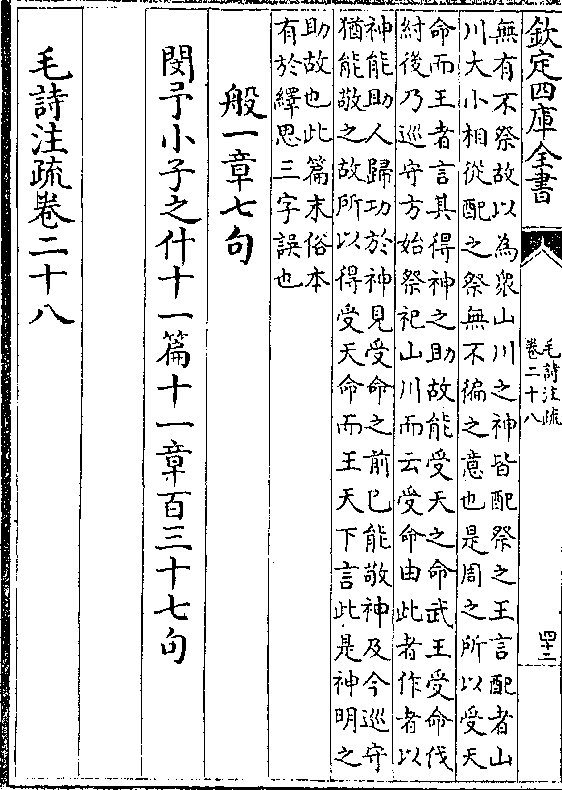 欽定四庫全書
毛詩注疏
卷二十八
四十三
無有不祭故以為衆山川之神皆配祭之王言配者山
川大小相從配之祭無不徧之意也是周之所以受天
命而王者言其得神之助故能受天之命武王受命伐
紂後乃巡守方始祭祀山川而云受命由此者作者以
神能助人歸功於神見受命之前已能敬神及今巡守
猶能敬之故所以得受天命而王天下言此是神明之
助故也此篇末俗本
有於繹思三字誤也
般一章七句
閔予小子之什十一篇十一章百三十七句
毛詩注疏卷二十八